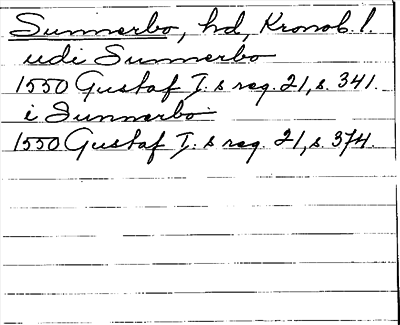 Sunnerbo, hd, Kronob. l.
udi Sunnerbo
1550 Gustaf I:s reg. 21, s. 341.
i Sunnerbo
1550 Gustaf I:s reg. 21, s. 374.